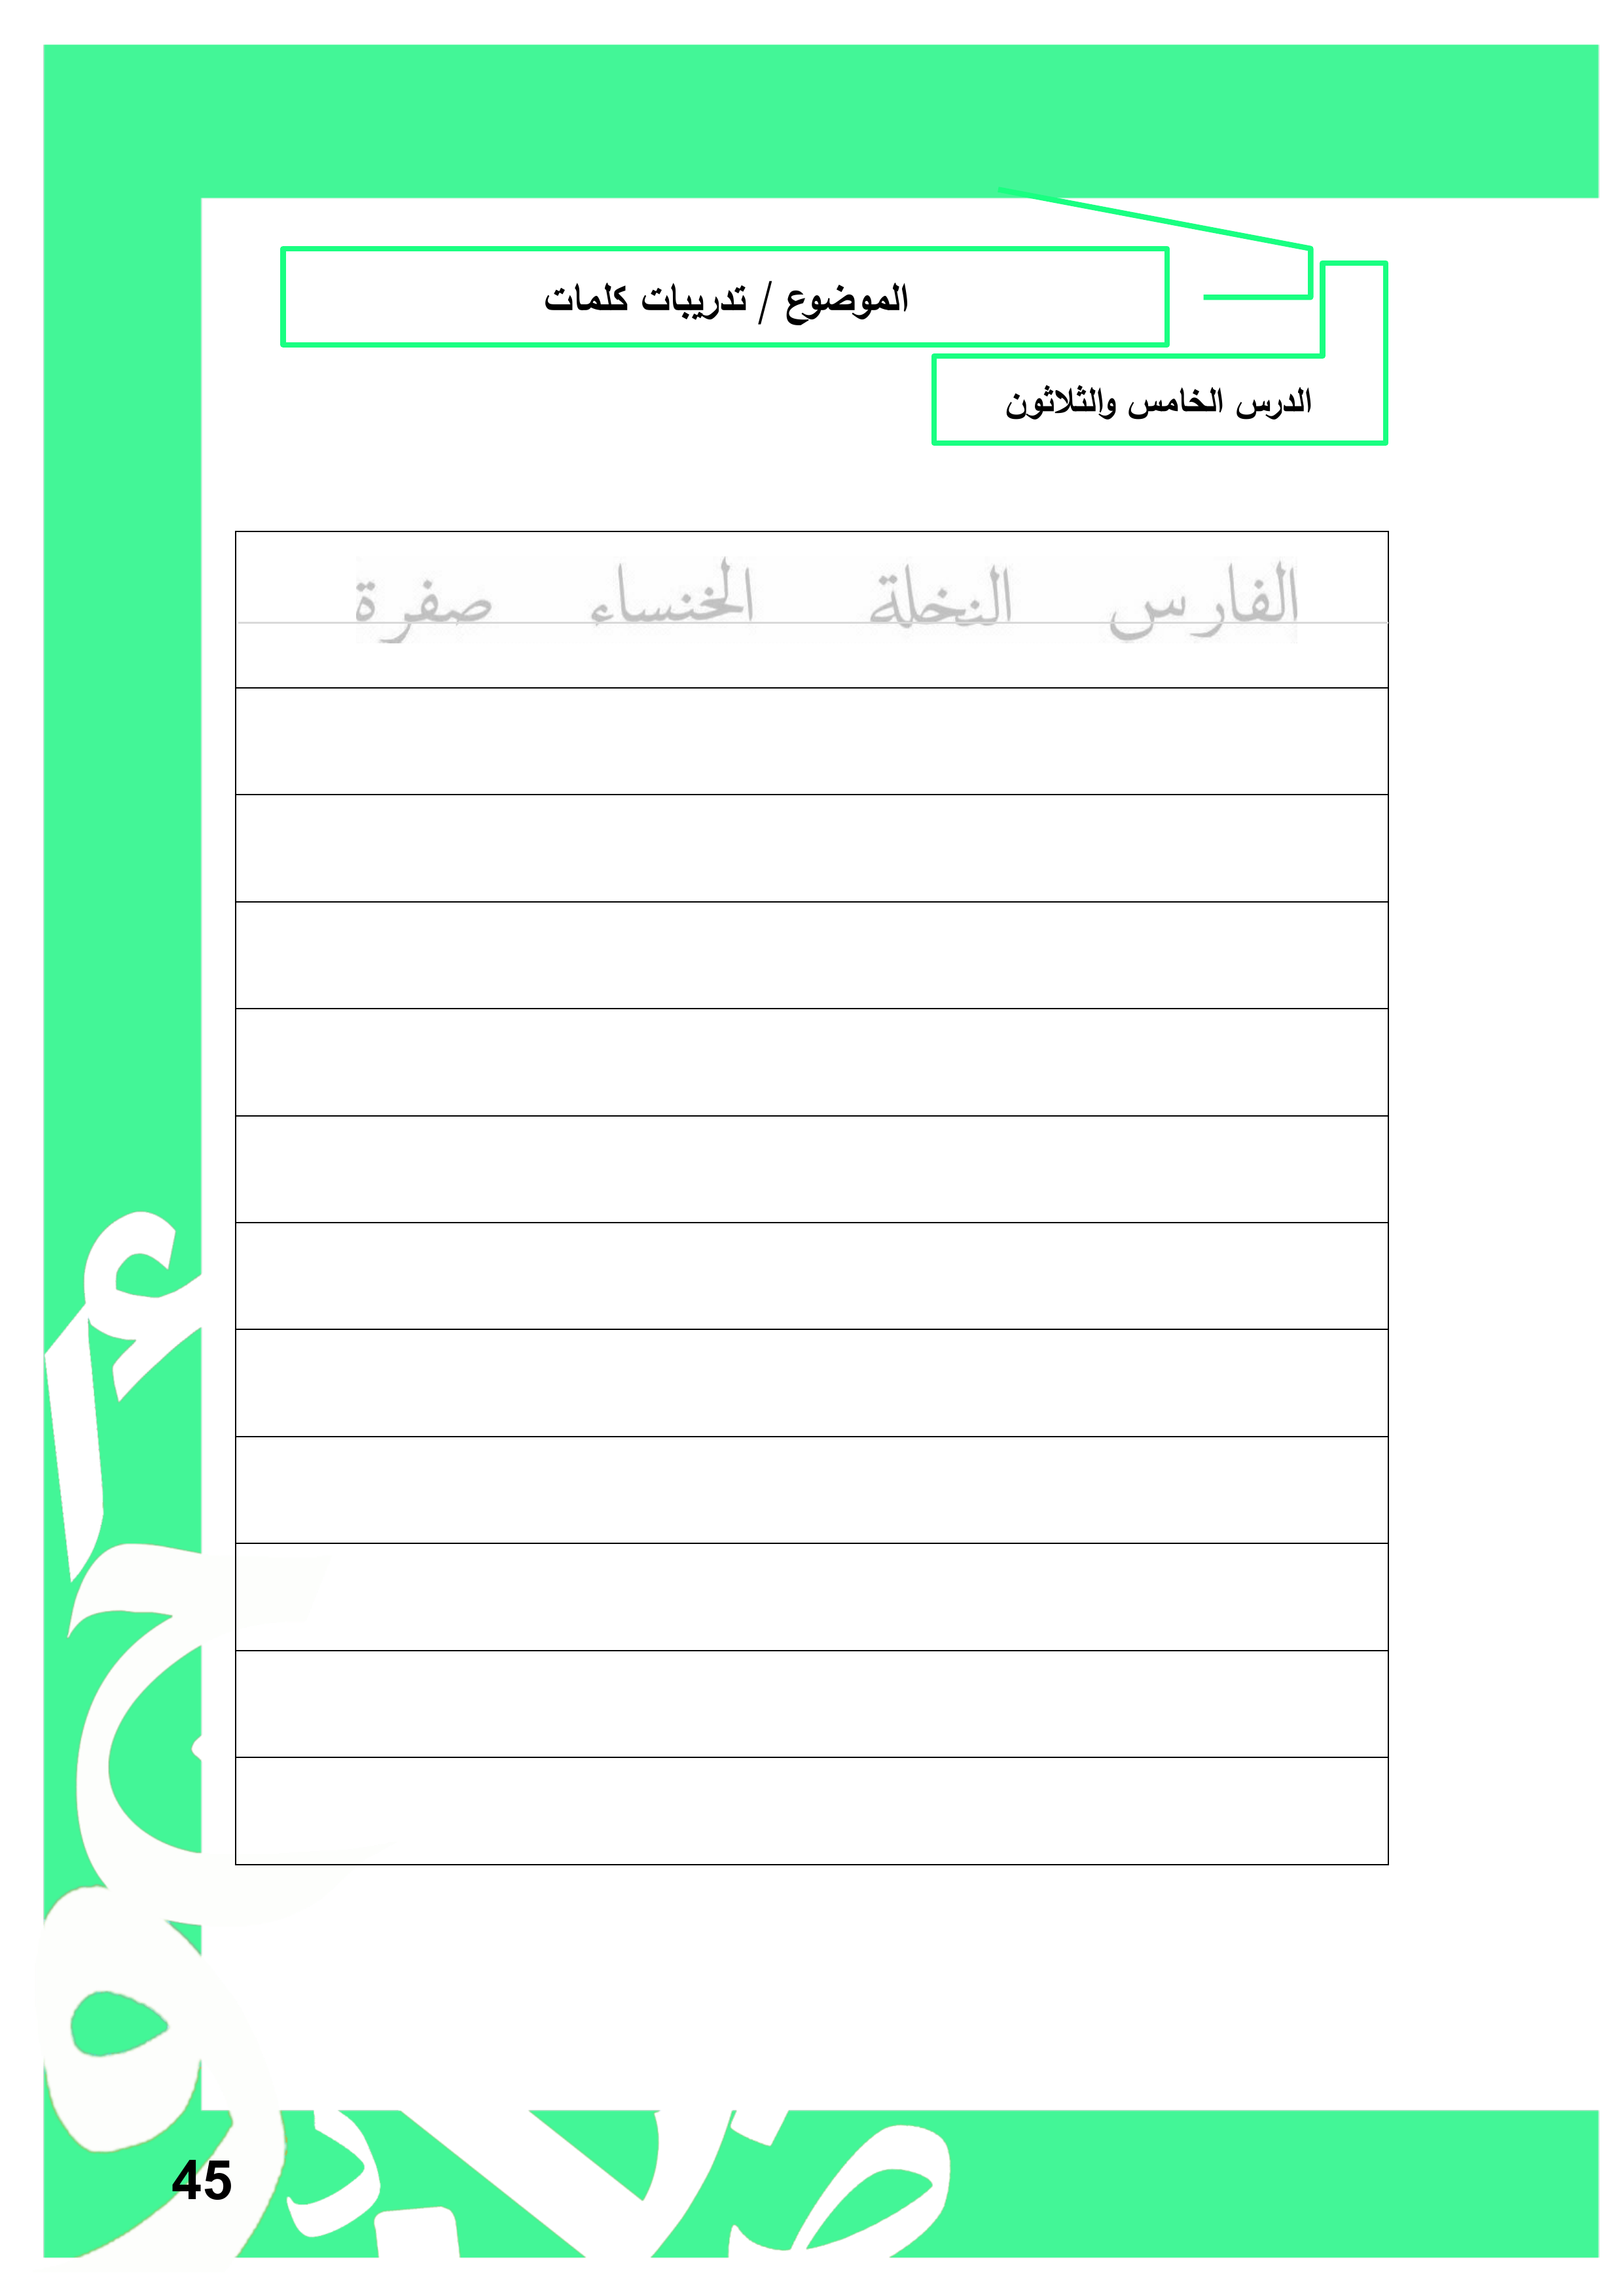 الموضوع / تدريبات كلمات
الدرس الخامس والثلاثون
الفارس النخلة الخنساء صفرة
45